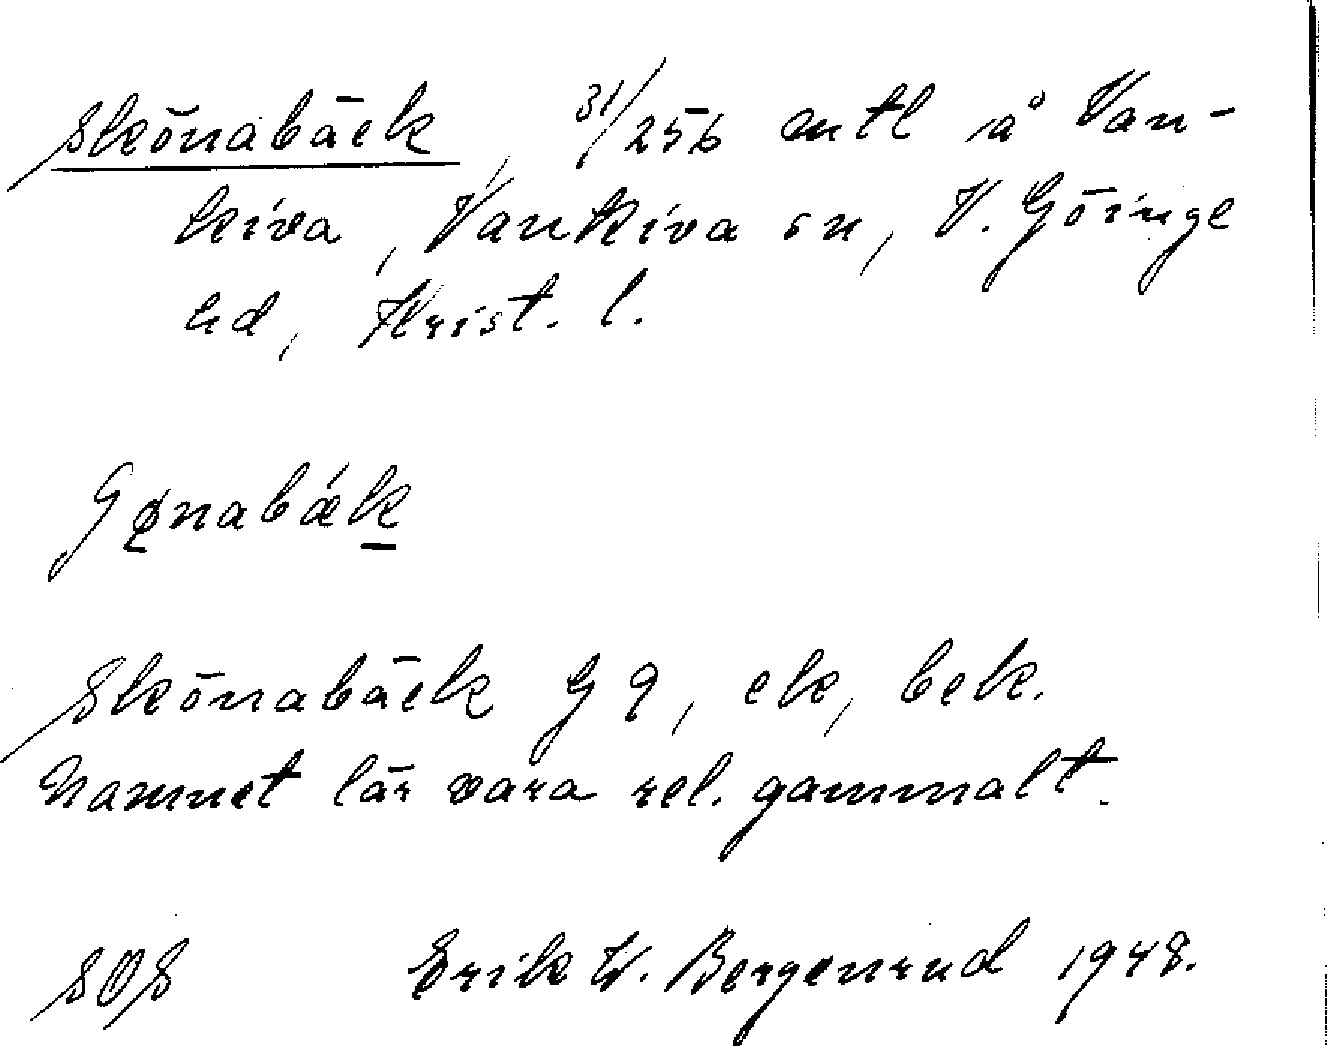 Skönabäck, 31/256 mtl å Van-
kiva, Vankiva sn, V. Göinge
hd, Krist. l.
Skönabäck G 9, ek, bek.
Namnet lär vara rel. gammalt.
SOS Erik W. Bergenrud 1948.